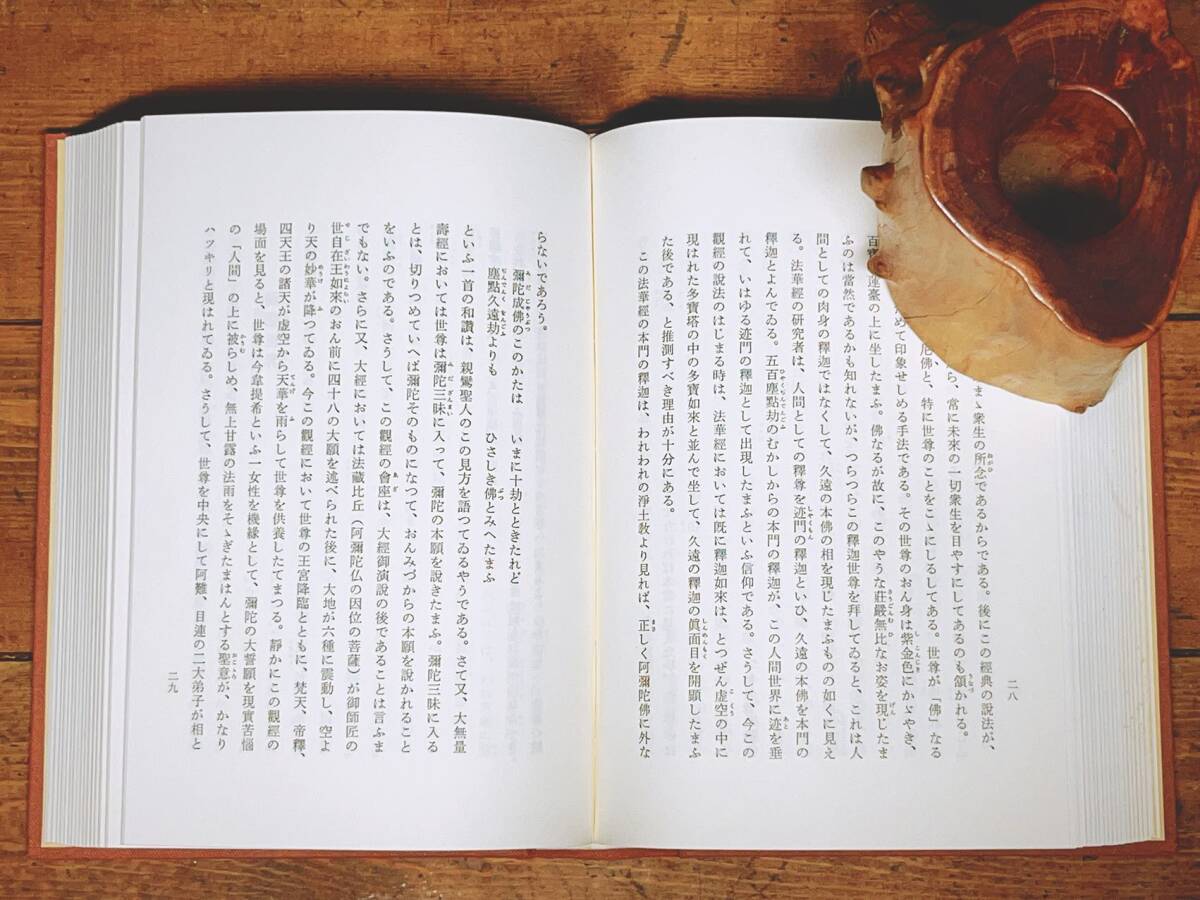 まゝ衆生の所念であるからである。後にこの經典の說法が、
ら、常に未來の一切衆生を目やすにしてあるのも頷かれる。
尼佛と、特に世尊のことをこゝにしるしてある。世尊が「佛」なる
めて印象せしめる手法である。その世尊のおん身は紫金色にかゞやき、
百寶蓮臺の上に坐したまふ。佛なるが故に、このやうな莊嚴無比なお姿を現じたま
ふのは當然であるかも知れないが、つらつらこの釋迦世尊を拜してゐると、これは人
間としての肉身の釋迦ではなくして、久遠の本佛の相を現じたまふものの如くに見え
る。法華經の研究者は、人間としての釋尊を迹門の釋迦といひ、久遠の本佛を本門の
釋迦とよんでゐる。五百塵點劫のむかしからの本門の釋迦が、この人間世界に迹を垂
れて、いはゆる迹門の釋迦として出現したまふといふ信仰である。さうして、今この
觀經の說法のはじまる時は、法華經においては既に釋迦如來は、とつぜん虛空の中に
現はれた多寶塔の中の多寶如來と並んで坐して、久遠の釋迦の眞面目を開顯したまふ
た後である、と推測すべき理由が十分にある。
この法華經の本門の釋迦は、われわれの淨土敎より見れば、正しく阿彌陀佛に外な
二八
らないであろう。
彌陀成佛のこのかたは　いまに十劫とときたれど
塵點久遠劫よりも　ひさしき佛とみへたまふ
といふ一首の和讚は、親鸞聖人のこの見方を語つてゐるやうである。さて又、大無量
壽經においては世尊は彌陀三昧に入って、彌陀の本願を說きたまふ。彌陀三昧に入る
とは、切りつめていへば彌陀そのものになつて、おんみづからの本願を說かれること
をいふのである。さうして、この觀經の會座は、大經御演說の後であることは言ふま
でもない。さらに又、大經においては法藏比丘（阿彌陀仏の因位の菩薩）が御師匠の
世自在王如來のおん前に四十八の大願を述べられた後に、大地が六種に震動し、空よ
り天の妙華が降つてゐる。今この觀經において世尊の王宮降臨とともに、梵天、帝釋、
四天王の諸天が虛空から天華を雨らして世尊を供養したてまつる。靜かにこの觀經の
場面を見ると、世尊は今韋提希といふ一女性を機緣として、彌陀の大誓願を現實苦惱
の「人間」の上に被らしめ、無上甘露の法雨をそゝぎたまはんとする聖意が、かなり
ハツキリと現はれてゐる。さうして、世尊を中央にして阿難、目連の二大弟子が相と
二九